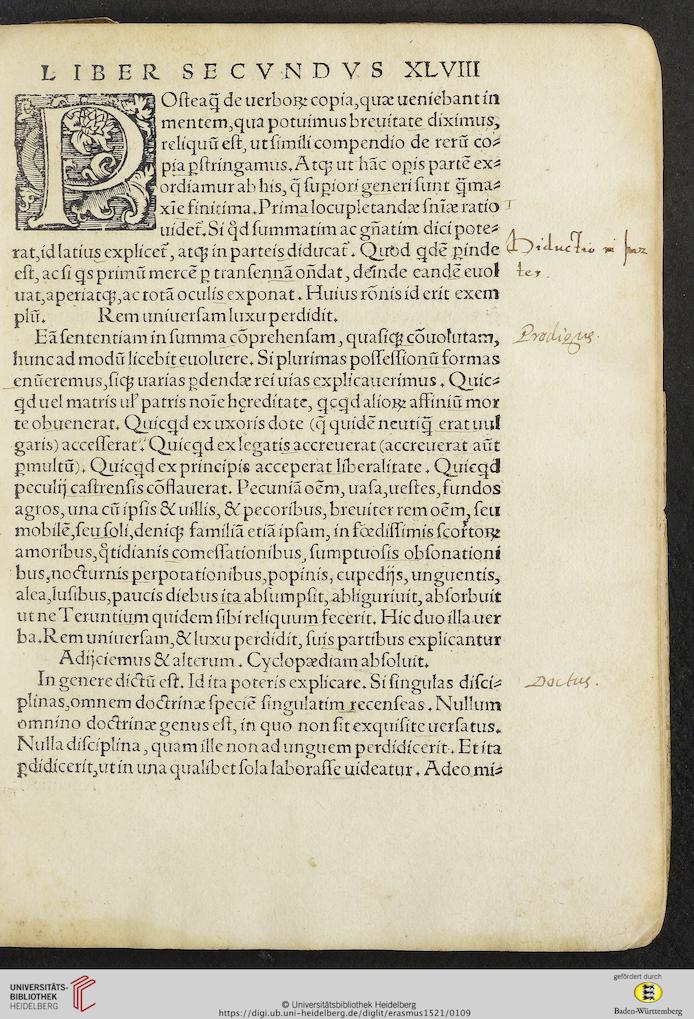 LIBER SECVNDVS XLVIII
POſteaq̃ de uerboꝝ copia, quæ ueniebant in
mentem, qua potuimus breuitate diximus,
reliquũ eſt, ut ſimili compendio de rerũ co⸗
pia pſtringamus. Atqꝫ ut hãc opis partẽ ex⸗
ordiamur ab his, q̃ ſupiori generi ſunt q̃ma⸗
xĩe finitima. Prima locupletandæ ſnĩæ ratio
uidet̃. Si qd ſummatim ac gñatim dici pote⸗
rat, id latius explicet̃, atqꝫ in parteis diducat̃. Quod qdẽ pinde
eſt, ac ſi qs primũ mercẽ p tranſennã oñdat, deinde eandẽ euol
uat, aperiatqꝫ, ac totã oculis exponat. Huius rõnis id erit exem
plũ. Rem uniuerſam luxu perdidit.
Eã ſententiam in ſumma cõprehenſam, quaſiqꝫ cõuolutam,
hunc ad modũ licebit euoluere. Si plurimas poſſeſſionũ formas
enũeremus, ſiqꝫ uarias pdendæ rei uias explicauerimus. Quic⸗
qd uel matris ul̕ patris noĩe hęreditate, qcqd alioꝝ affiniũ mor
te obuenerat. Quicqd ex uxoris dote (q̃ quidẽ neutiq̃ erat uul
garis) acceſſerat. Quicqd ex legatis accreuerat (accreuerat aũt
pmultũ). Quicqd ex principis acceperat liberalitate. Quicqd
peculij caſtrenſis cõflauerat. Pecuniã oẽm, uaſa, ueſtes, fundos
agros, una cũ ipſis & uillis, & pecoribus, breuiter rem oẽm, ſeu
mobilẽ, ſeu ſoli, deniqꝫ familiã etiã ipſam, in fœdiſſimis ſcortoꝝ
amoribus, q̃tidianis comeſſationibus, ſumptuoſis obſonationi
bus, nocturnis perpotationibus, popinis, cupedijs, unguentis,
alea, luſibus, paucis diebus ita abſumpſit, abliguriuit, abſorbuit
ut ne Teruntium quidem ſibi reliquum fecerit. Hic duo illa uer
ba. Rem uniuerſam, & luxu perdidit, ſuis partibus explicantur
Adijciemus & alterum. Cyclopædiam abſoluit.
In genere dictũ eſt. Id ita poteris explicare. Si ſingulas diſci⸗
plinas, omnem doctrinæ ſpeciẽ ſingulatim recenſeas. Nullum
omnino doctrinæ genus eſt, in quo non ſit exquiſite uerſatus.
Nulla diſciplina, quam ille non ad unguem perdidicerit. Et ita
pdidicerit, ut in una qualibet ſola laboraſſe uideatur. Adeo mi⸗
I
Diductio in par
tes.
Prodigus.
Doctus.
UNIVERSITÄTS-
BIBLIOTHEK
HEIDELBERG
© Universitätsbibliothek Heidelberg
https://digi.ub.uni-heidelberg.de/diglit/erasmus1521/0109
gefördert durch
Baden-Württemberg